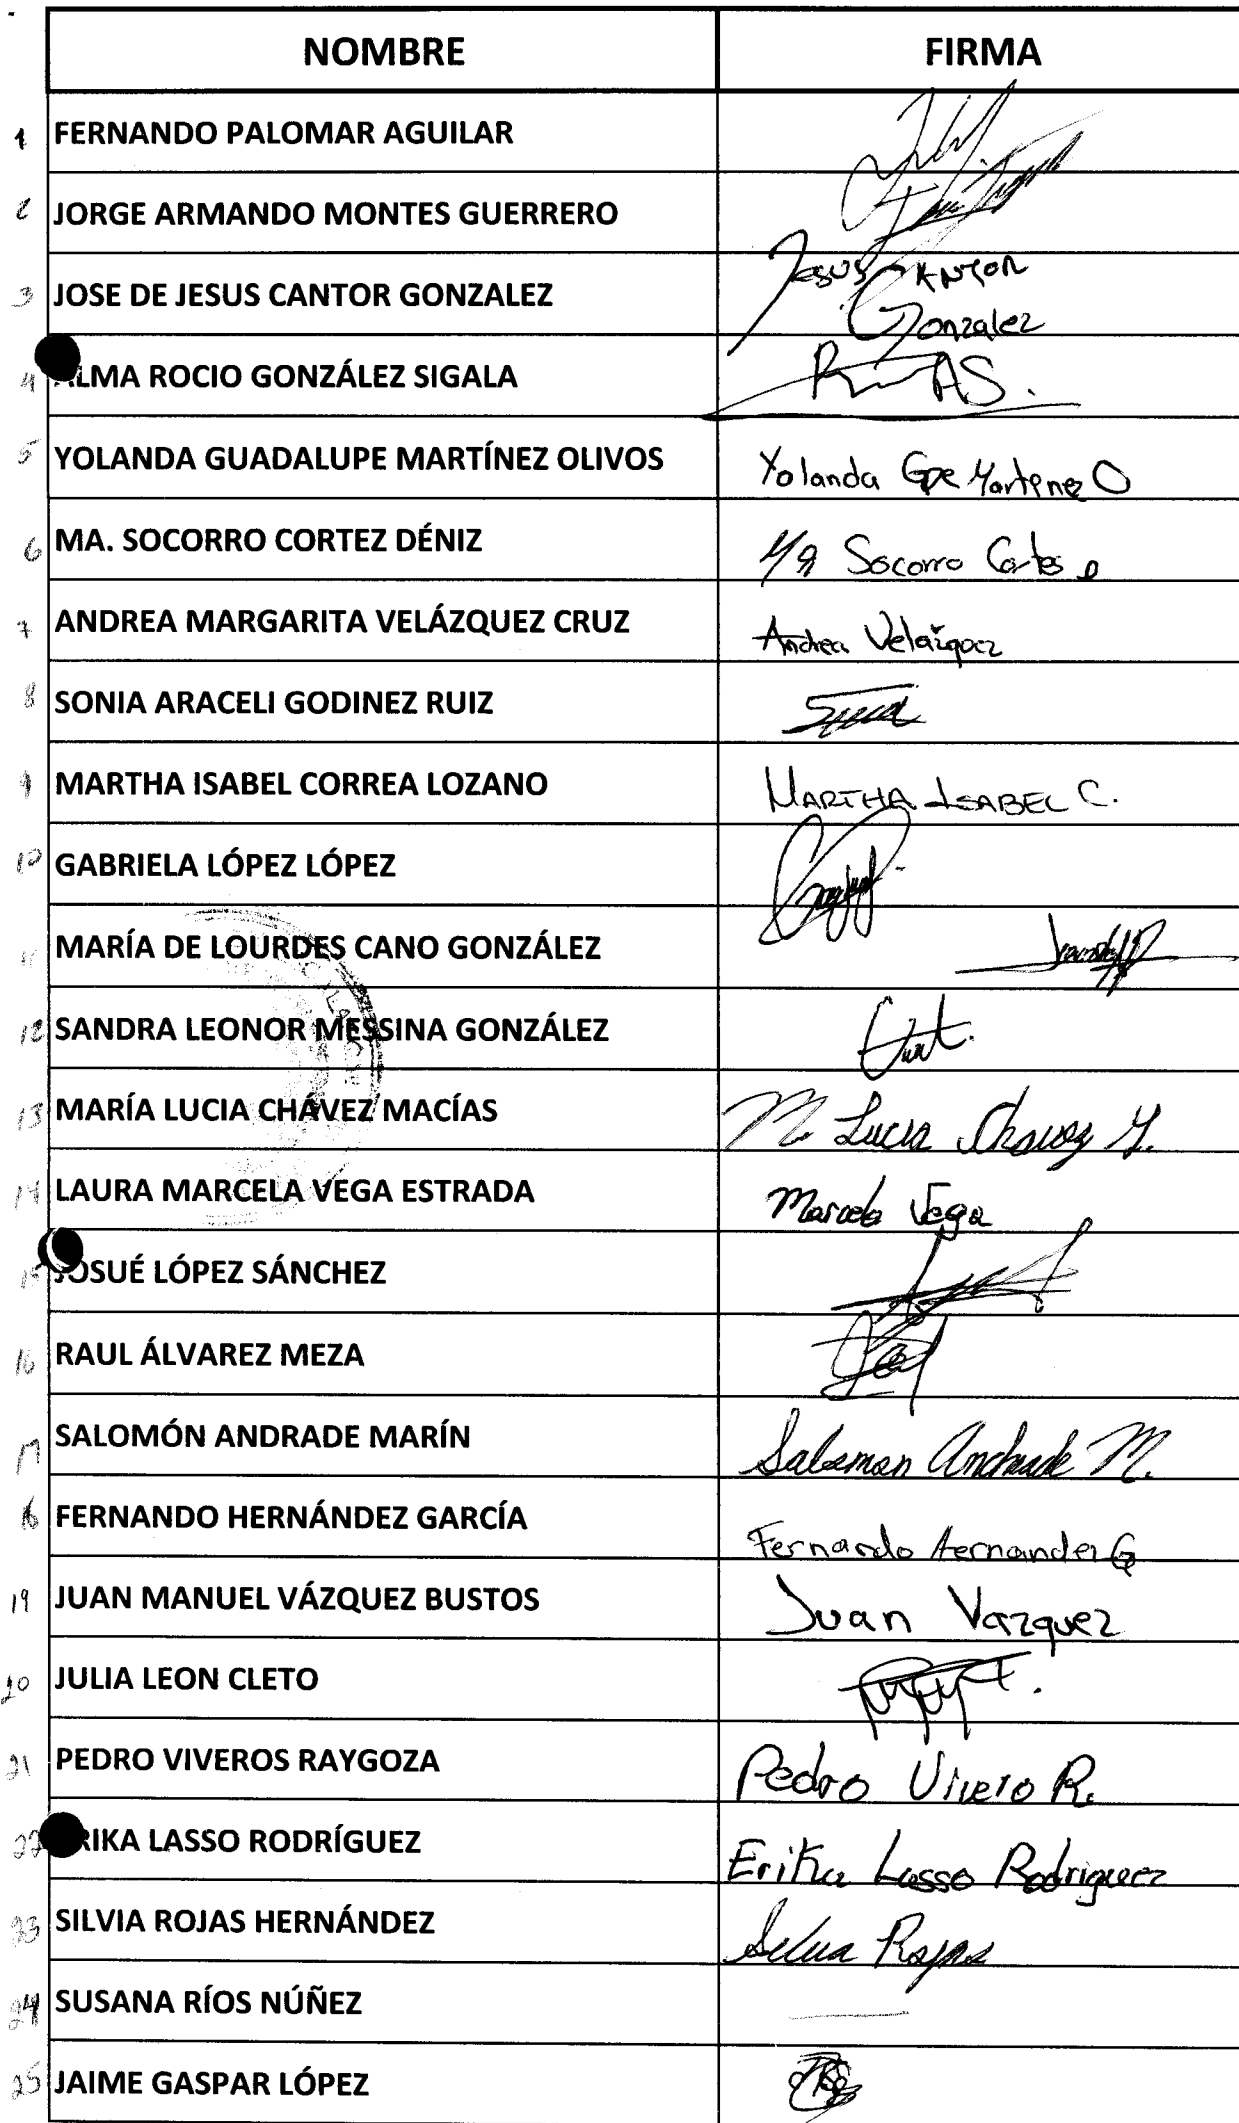 NOMBRE FIRMA
1 FERNANDO PALOMAR AGUILAR
2 JORGE ARMANDO MONTES GUERRERO
3 JOSE DE JESUS CANTOR GONZALEZ Jesus Cantor
Gonzalez
4 LMA ROCIO GONZÁLEZ SIGALA
5 YOLANDA GUADALUPE MARTÍNEZ OLIVOS Yolanda Gpe Martinez O
6 MA. SOCORRO CORTEZ DÉNIZ Ma Socorro Cortes D
7 ANDREA MARGARITA VELÁZQUEZ CRUZ Andrea Velázquez
8 SONIA ARACELI GODINEZ RUIZ
9 MARTHA ISABEL CORREA LOZANO MARTHA ISABEL C.
10 GABRIELA LÓPEZ LÓPEZ
11 MARÍA DE LOURDES CANO GONZÁLEZ
12 SANDRA LEONOR MESSINA GONZÁLEZ
13 MARÍA LUCIA CHÁVEZ MACÍAS M. Lucia Chavez M.
14 LAURA MARCELA VEGA ESTRADA Marcela Vega
15 JOSUÉ LÓPEZ SÁNCHEZ
16 RAUL ÁLVAREZ MEZA
17 SALOMÓN ANDRADE MARÍN Salomon Andrade M.
FERNANDO HERNÁNDEZ GARCÍA Fernando Hernandez G
19 JUAN MANUEL VÁZQUEZ BUSTOS Juan Vazquez
20 JULIA LEON CLETO
21 PEDRO VIVEROS RAYGOZA Pedro Vivero R.
22 RIKA LASSO RODRÍGUEZ Erika Lasso Rodriguez
23 SILVIA ROJAS HERNÁNDEZ Silvia Rojas
24 SUSANA RÍOS NÚÑEZ
25 JAIME GASPAR LÓPEZ